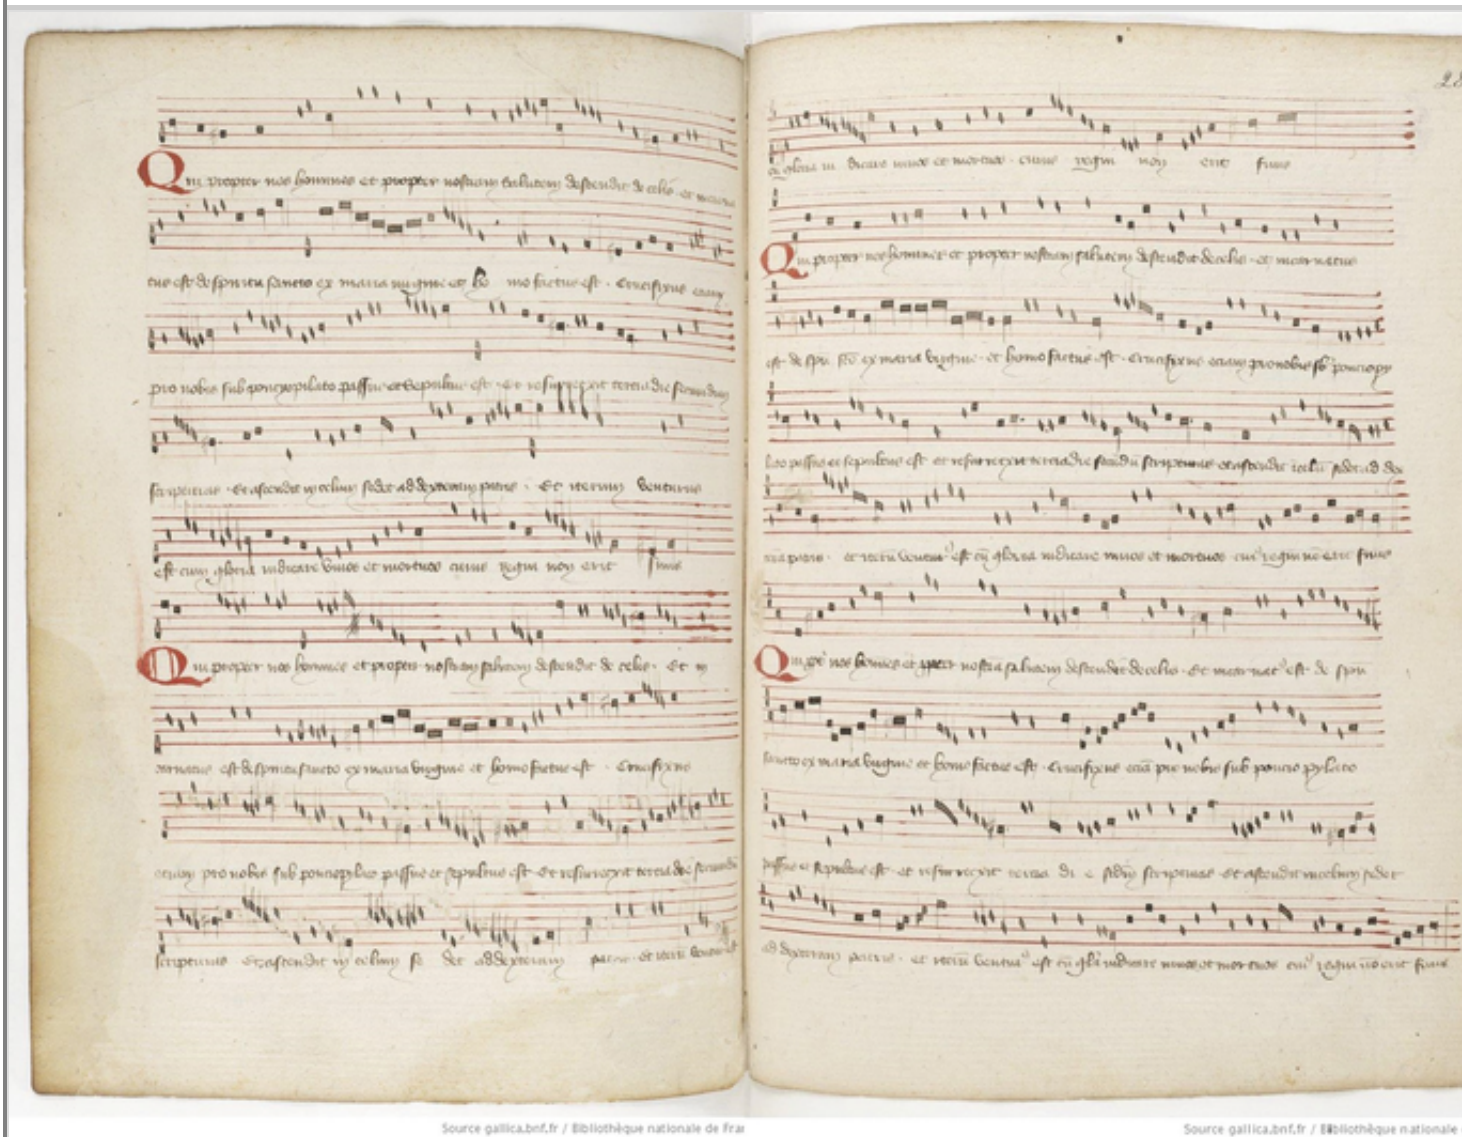 Qui propter nos homines et propter nostram salutem descendit de celis et
tus est de spiritu sancto ex maria virgine et ho mo factus est . Crucifixus eciam
pro nobis sub poncyo pilato passus et sepultus est . Et resurrexit tercia die secundum
scripturas . Et ascendit in celum sedet ad dexteram patris . Et iterum venturus
est cum gloria iudicare vivos et mortuos cuius regni non erit finis
Qui propter nos homines et propter nostram salutem descendit de celis . Et in
carnatus est de spiritu sancto ex maria virgine et homo factus est . Crucifixus
eciam pro nobis sub poncio pylato passus et sepultus est . Et resurrexit tercia die secundum
scripturas Et ascendit in celum se det ad dexteram patris . et iterum
28
cum gloria iu dicare vivos et mortuos . cuius regni non erit finis
Qui propter nos homines et propter nostram salutem descendit de celis . et incarnatus
est de spu ex maria virgine . et homo factus est . Crucifixus eciam pro nobis sub poncio py
lato passus et sepultus est et resurrexit tercia die scripturas et ascendit sedet ad
patris . et est gloria iudicare vivos et mortuos erit finis
Qui nos homines et nostra salutem descendit de celis . Et est de spiri
sancto ex maria virgine et homo factus est . Crucifixus pro nobis sub poncio pylato
passus et sepultus est . et resurrexit tercia di e scripturas . Et ascendit in celum sedet
ad dexteram patris . et est iudicare vivos et mortuos erit finis
Source gallica.bnf.fr / Bibliothèque nationale de Fra
Source gallica.bnf.fr / Bibliothèque nationale